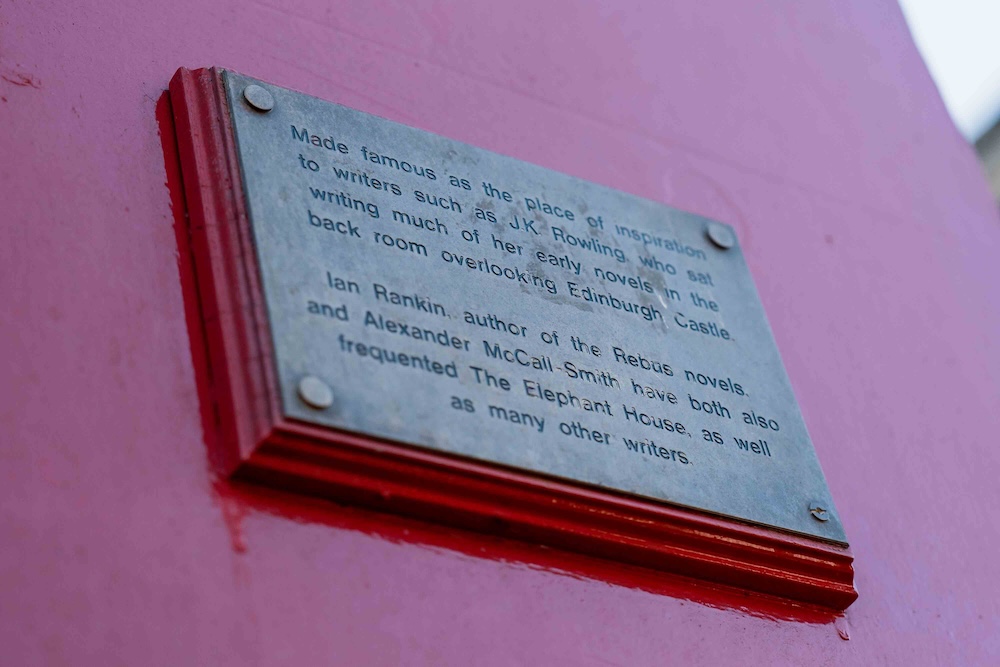 Made famous as the place of inspiration
to writers such as J.K. Rowling, who sat
writing much of her early novels in the
back room overlooking Edinburgh Castle.
Ian Rankin, author of the Rebus novels.
and Alexander McCall-Smith have both also
frequented The Elephant House, as well
as many other writers.